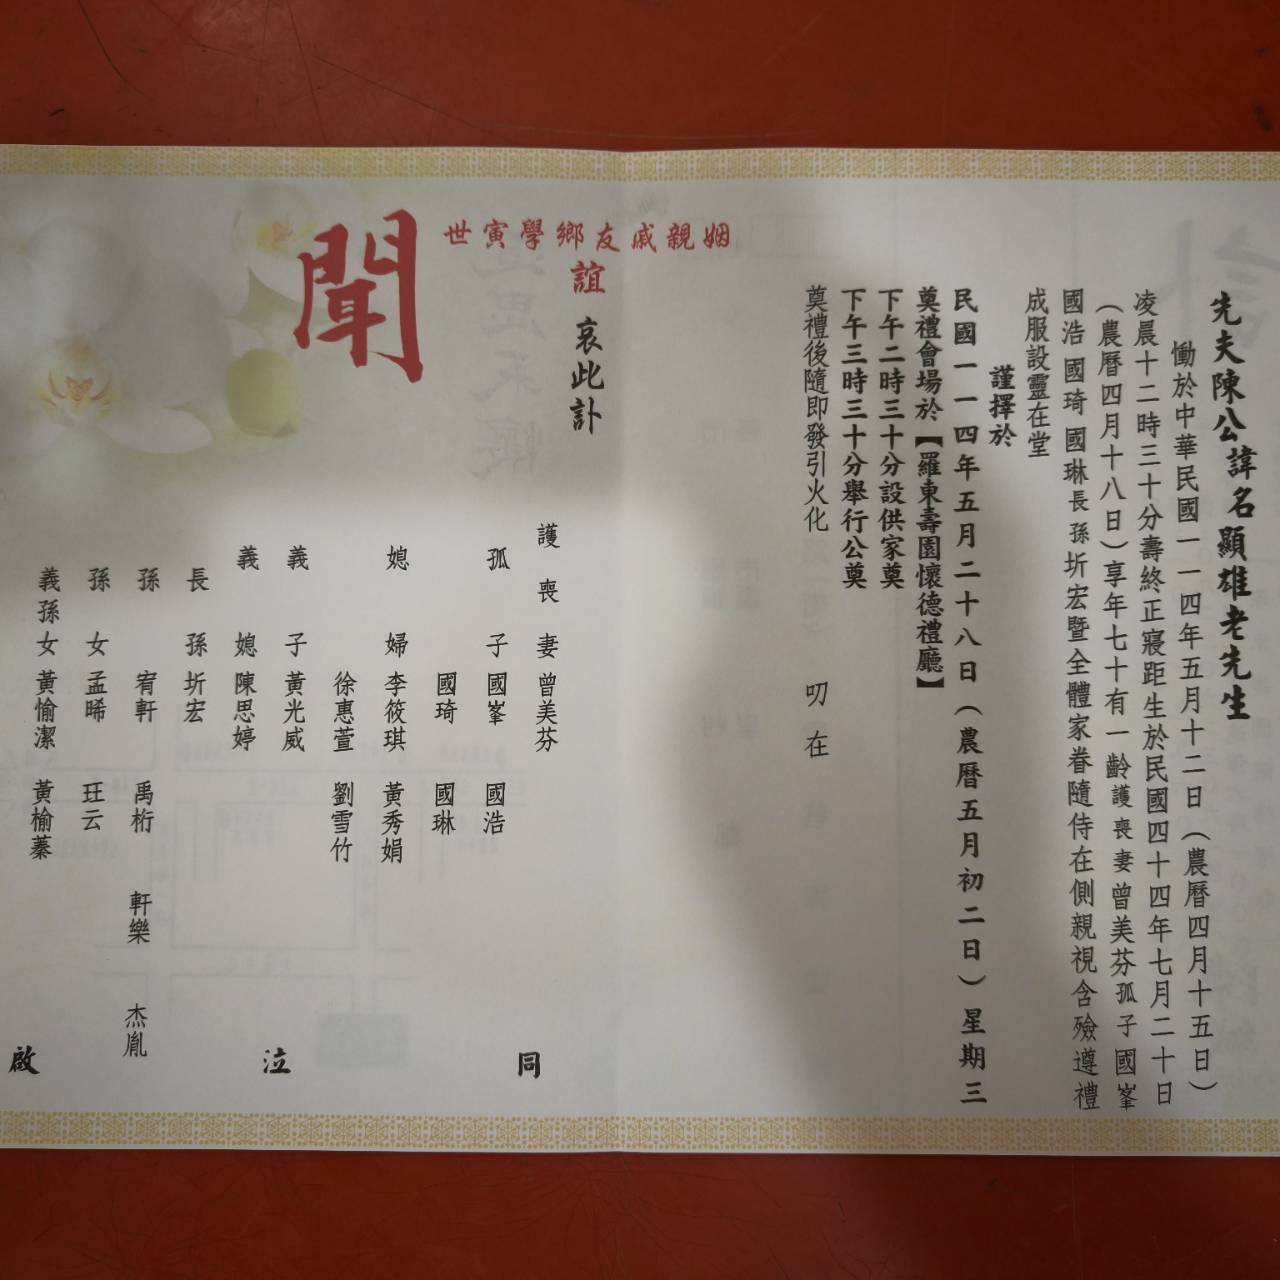 先夫陳公諱名顯雄老先生
慟於中華民國一一四年五月十二日(農曆四月十五日)
凌晨十二時三十分壽終正寢距生於民國四十四年七月二十日
(農曆四月十八日)享年七十有一齡護喪妻曾美芬孤子國峯
國浩國琦國琳長孫圻宏暨全體家眷隨侍在側親視含殮遵禮
成服設靈在堂
謹擇於
民國一一四年五月二十八日(農曆五月初二日)星期三
奠禮會場於【羅東壽園懷德禮廳】
下午二時三十分設供家奠
下午三時三十分舉行公奠
奠禮後隨即發引火化
叨在
姻親戚友鄉學寅世
誼 哀此訃
聞
護喪妻 曾美芬
孤子 國峯 國浩
國琦 國琳
媳婦 李筱琪 黃秀娟
徐惠萱 劉雪竹
義子 黃光威
義媳 陳思婷
長孫 圻宏
孫 宥軒 禹桁 軒樂 杰胤
孫女 孟晞 玨云
義孫女 黃愉潔 黃榆蓁
同泣啟